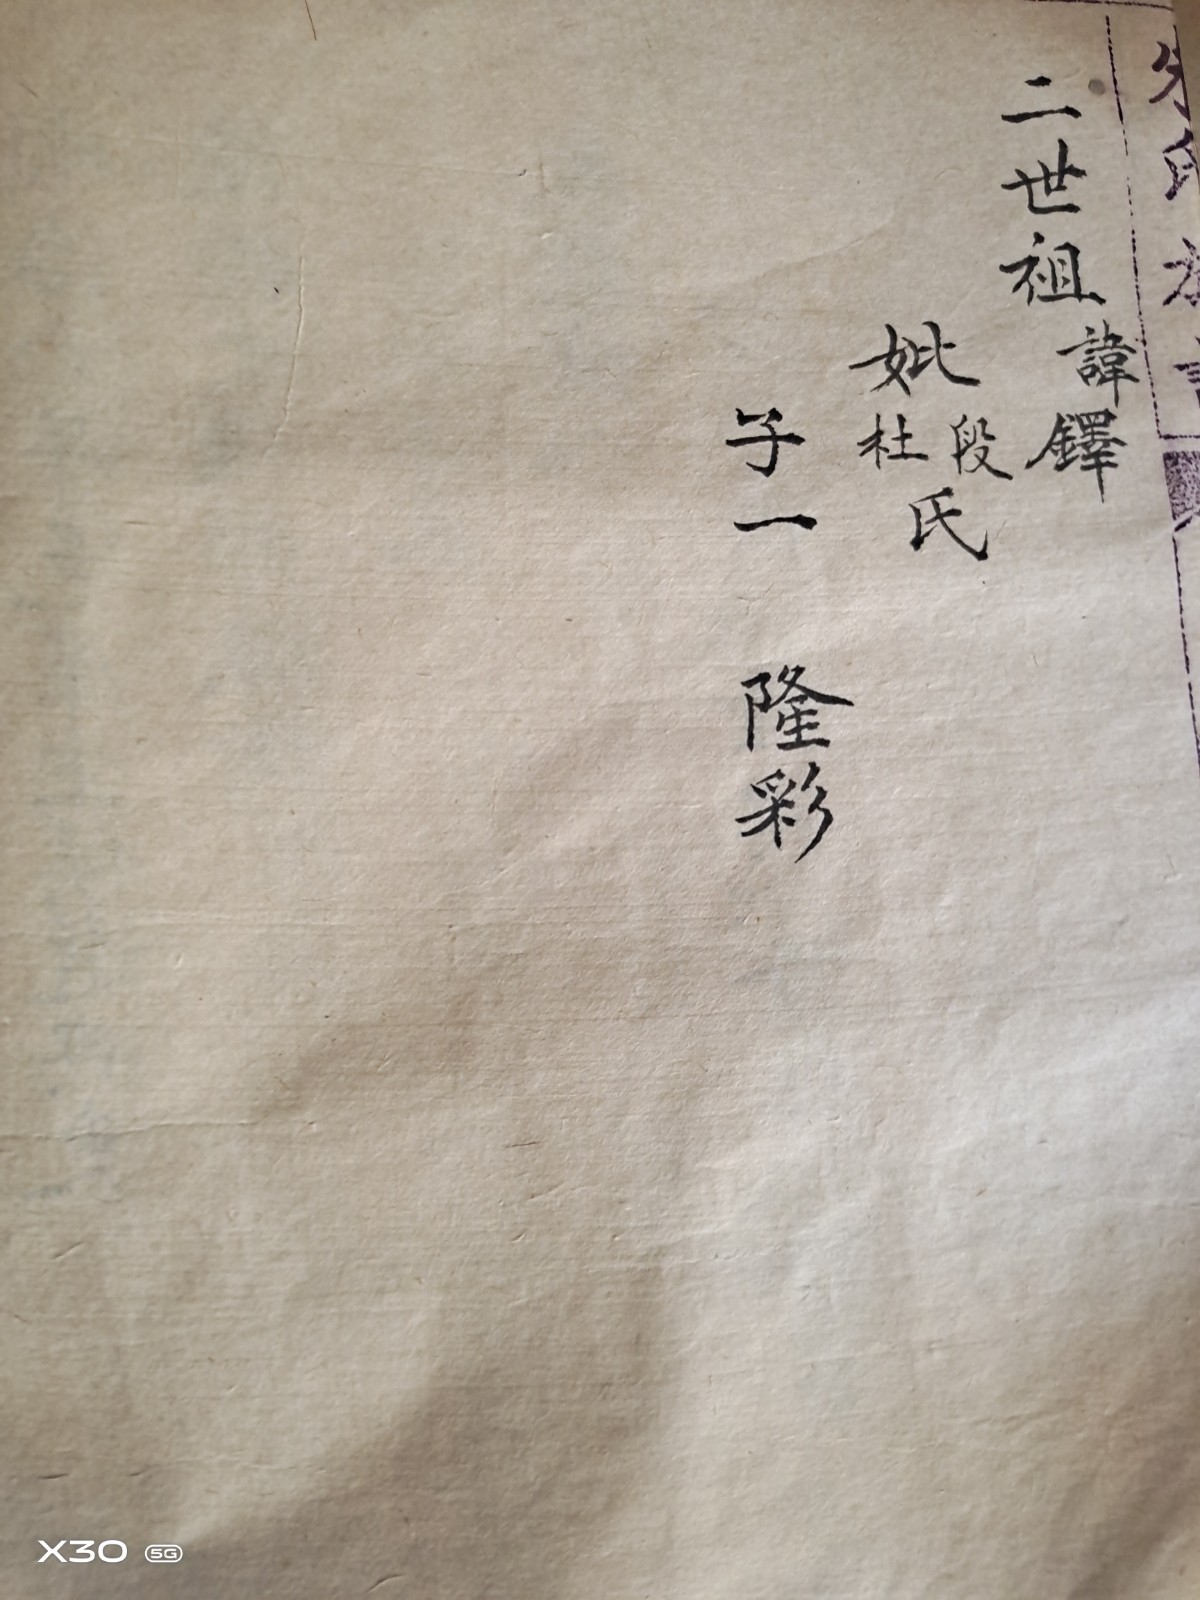 二世祖
諱鐸
妣段杜氏
子一 隆彩
X30 5G